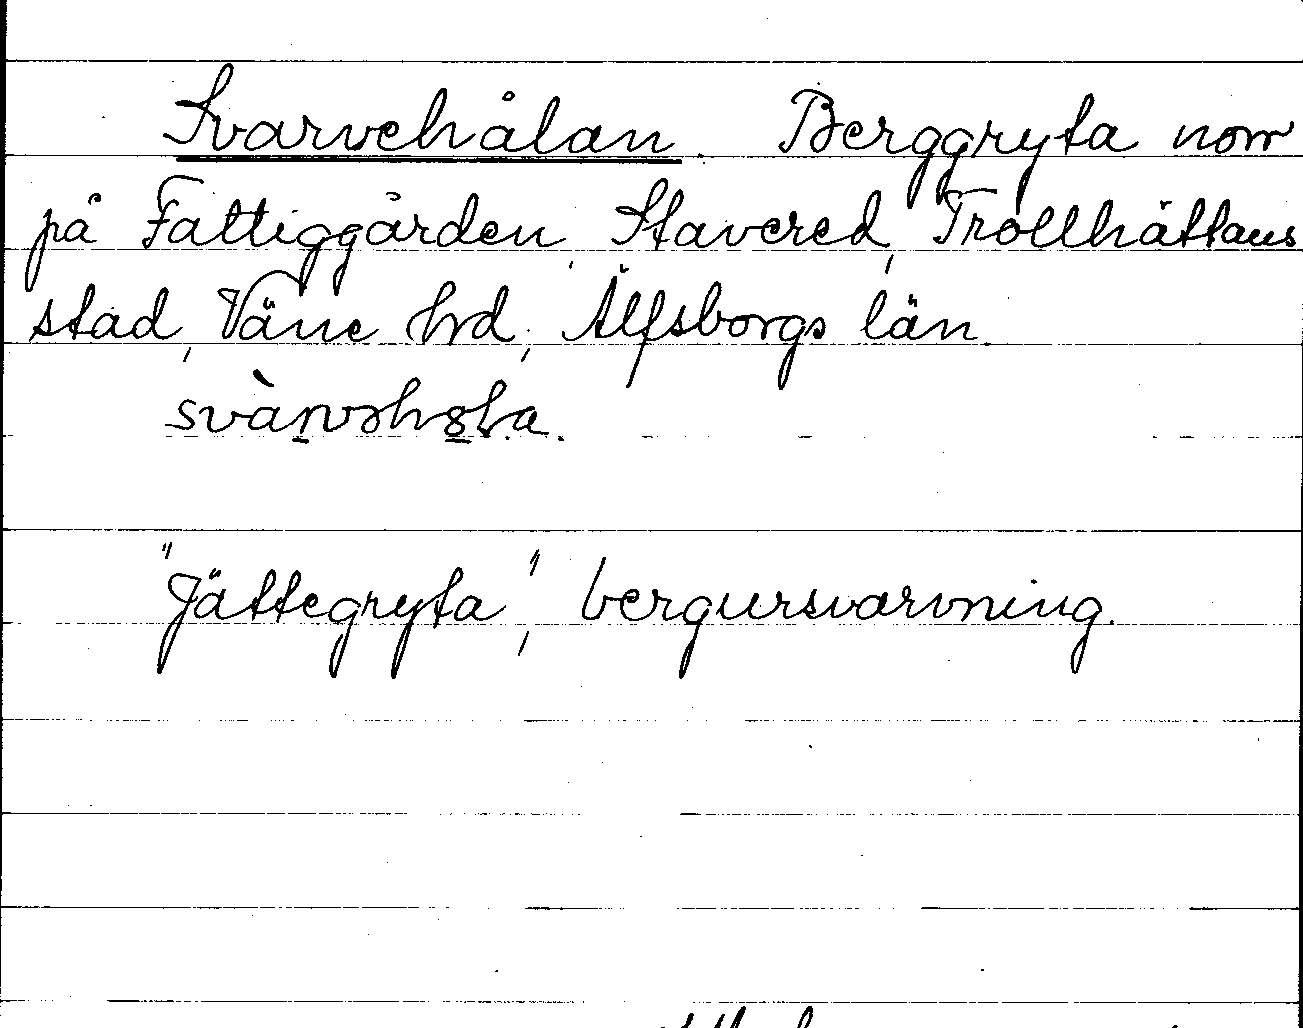 Svarvehålan. Berggryta norr
på Fattiggården, Stavered, Trollhättans
stad, Väne hrd, Älfsborgs län.
"Jättegryta", bergursvarvning.